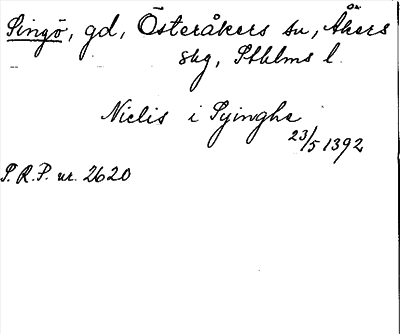 Singö, gd, Österåkers sn, Åkers
skg, Sthlms l.
Niclis i Syinghe
23/5 1392
S.R.P. nr. 2620